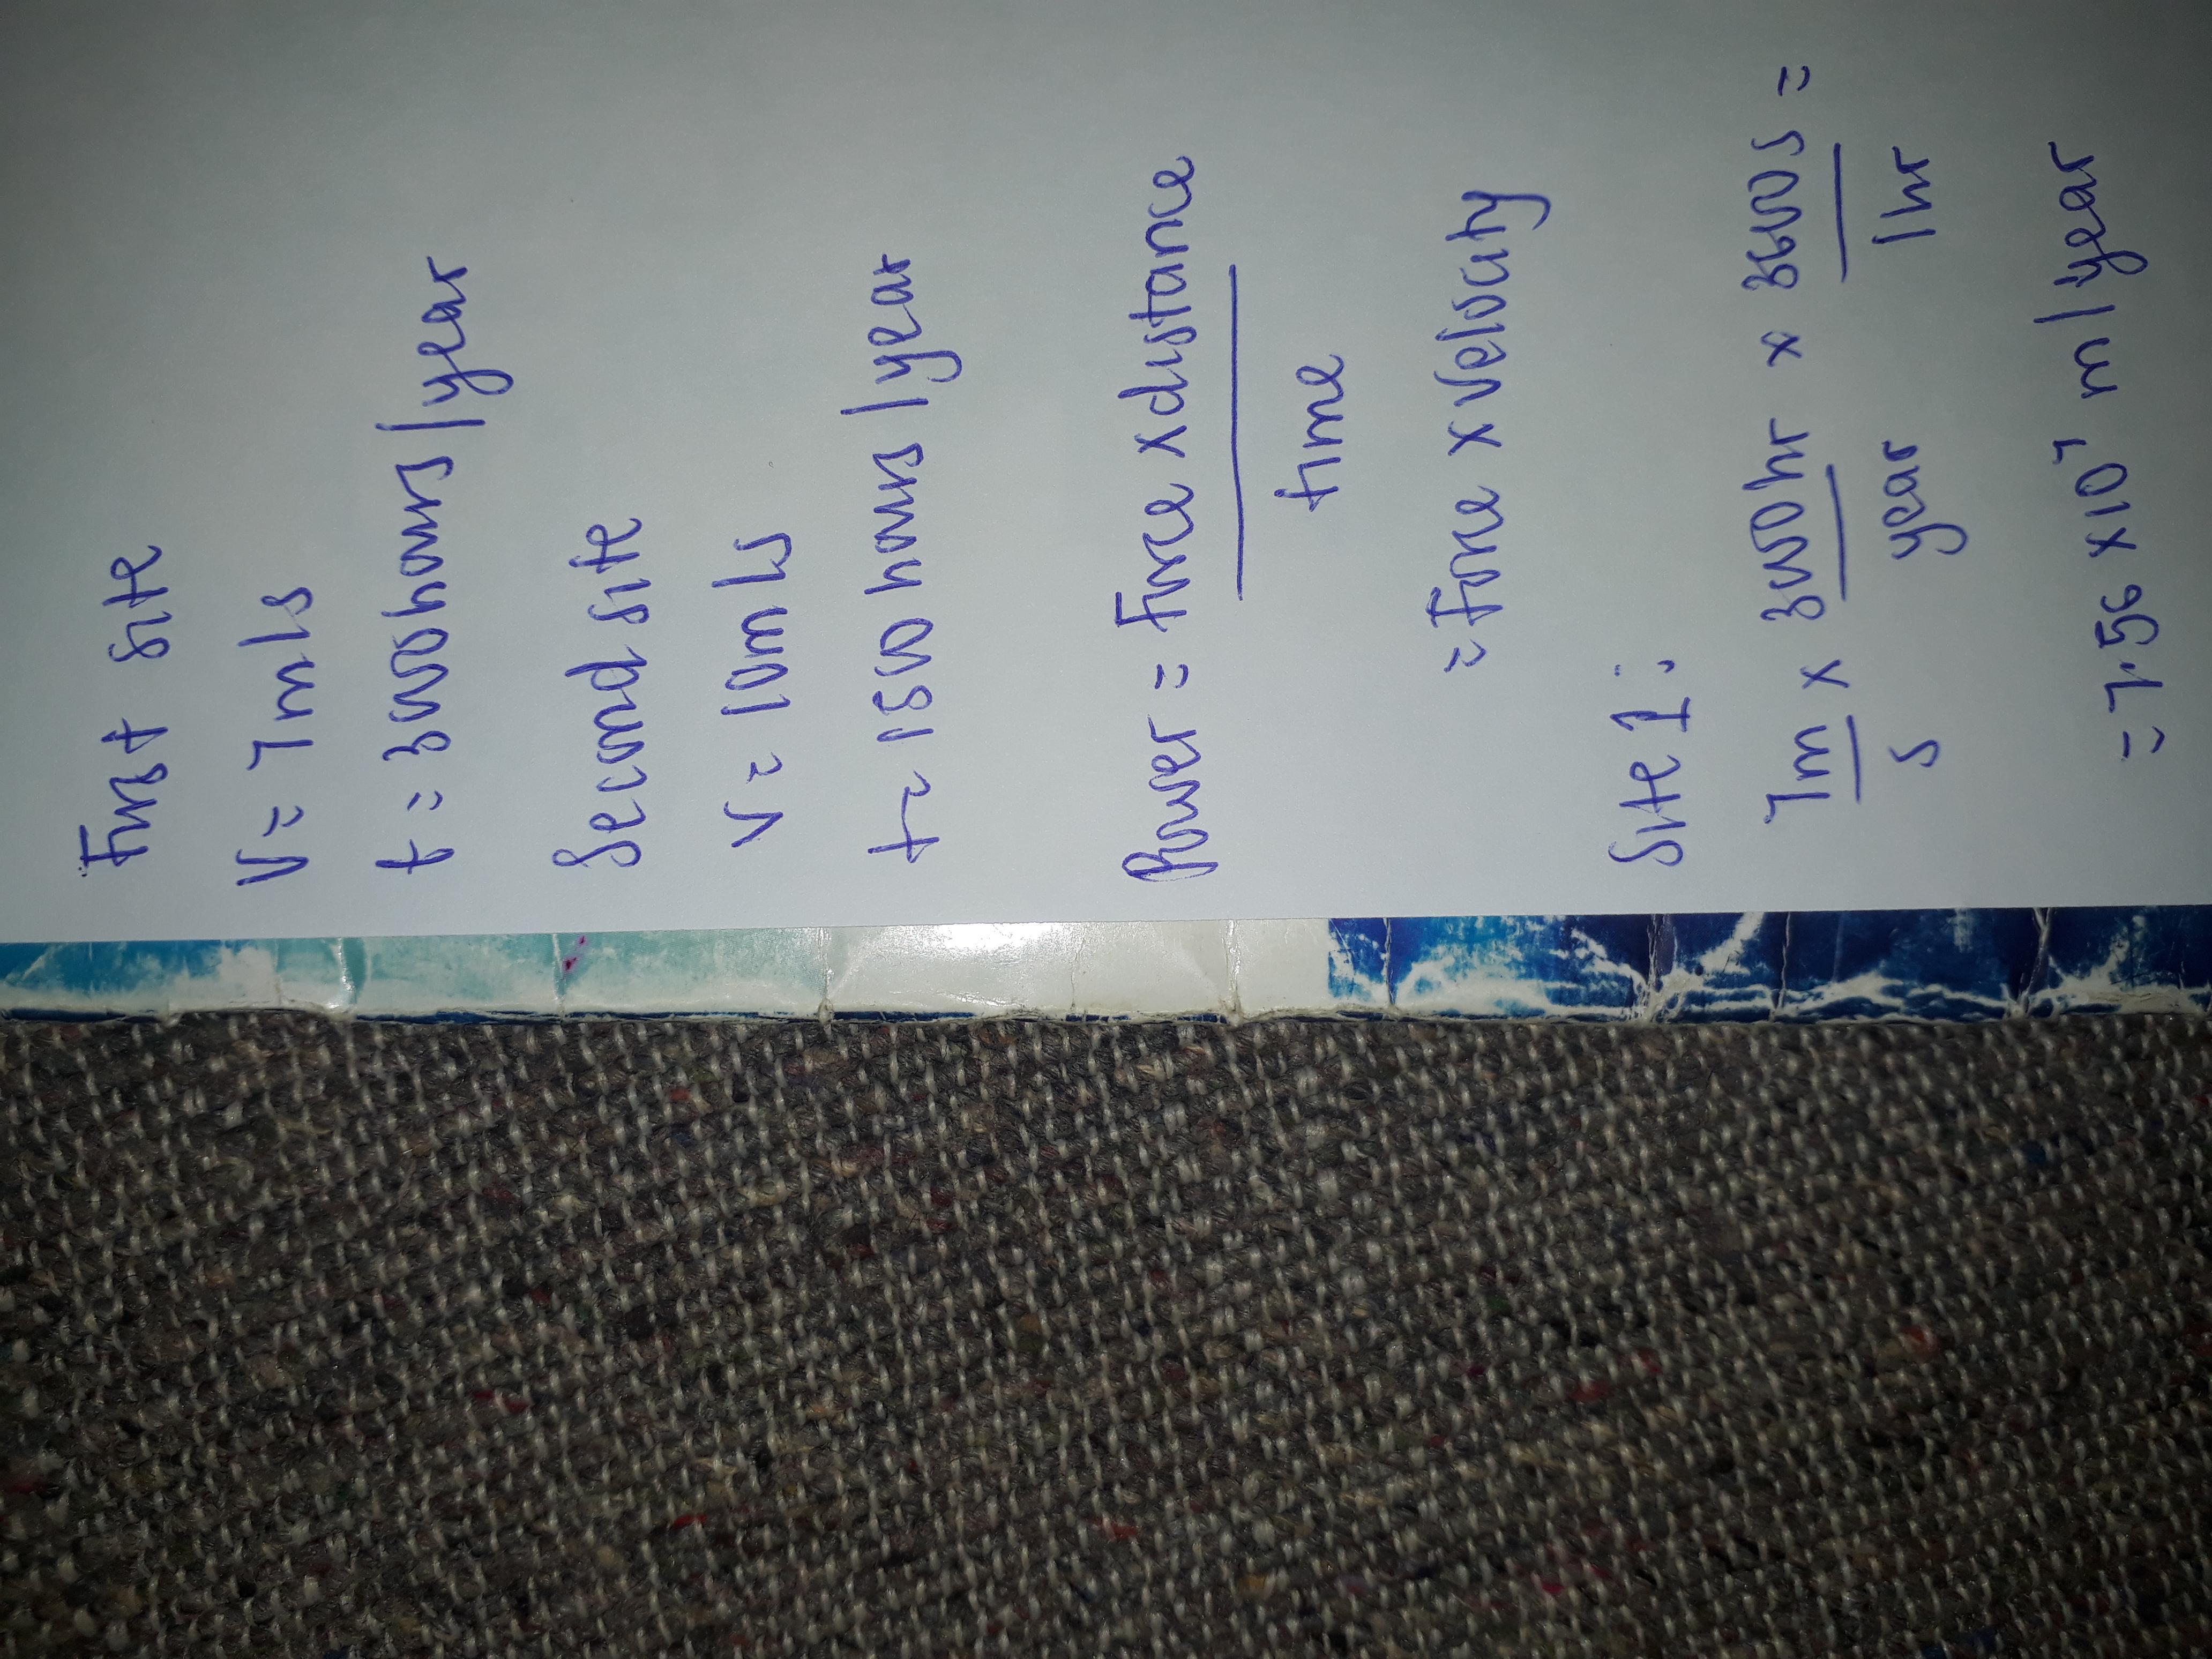 First site
V = 7 m/s
t = 3000 hours/year
Second site
V = 10 m/s
t = 1500 hours/year
Power = Force x distance
time
= Force x velocity
Site 1:
7m x 3000hr x 3600s =
s year 1hr
= 7.56 x10⁷ m/year